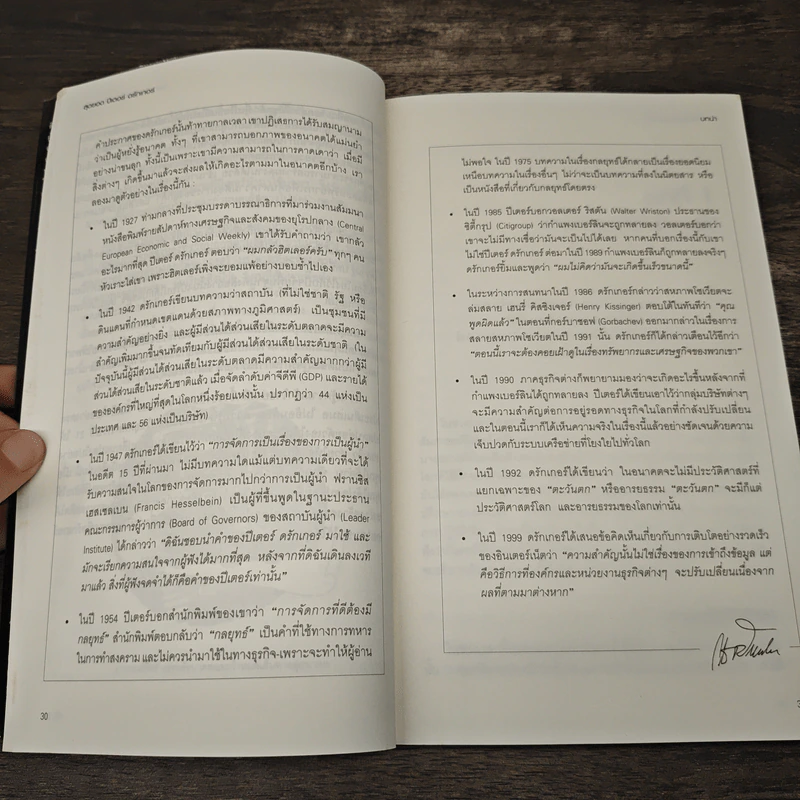 สุดยอด ปีเตอร์ ดรักเกอร์
คำประกาศของดรักเกอร์นั้นท้าทายกาลเวลา เขาปฏิเสธการได้รับสมญานาม
ว่าเป็นผู้หยั่งรู้อนาคต ทั้งๆ ที่เขาสามารถบอกภาพของอนาคตได้แม่นยำ
อย่างน่าขนลุก ทั้งนี้เป็นเพราะเขามีความสามารถในการคาดเดาว่า เมื่อมี
สิ่งต่างๆ เกิดขึ้นมาแล้วจะส่งผลให้เกิดอะไรตามมาในอนาคตอีกบ้าง เรา
ลองมาดูตัวอย่างในเรื่องนี้กัน
• ในปี 1927 ท่ามกลางที่ประชุมบรรดาบรรณาธิการที่มาร่วมงานสัมมนา
หนังสือพิมพ์รายสัปดาห์ทางเศรษฐกิจและสังคมของยุโรปกลาง (Central
European Economic and Social Weekly) เขาได้รับคำถามว่า เขากลัว
อะไรมากที่สุด ปีเตอร์ ดรักเกอร์ ตอบว่า "ผมกลัวฮิตเลอร์ครับ" ทุกๆ คน
หัวเราะใส่เขา เพราะฮิตเลอร์เพิ่งจะยอมแพ้อย่างบอบช้ำไปเอง
• ในปี 1942 ดรักเกอร์เขียนบทความว่าสถาบัน (ที่ไม่ใช่ชาติ รัฐ หรือ
ดินแดนที่กำหนดเขตแดนด้วยสภาพทางภูมิศาสตร์) เป็นชุมชนที่มี
ความสำคัญอย่างยิ่ง และผู้มีส่วนได้ส่วนเสียในระดับตลาดจะมีความ
สำคัญเพิ่มมากขึ้นจนทัดเทียมกับผู้มีส่วนได้ส่วนเสียในระดับชาติ (ใน
ปัจจุบันนี้ผู้มีส่วนได้ส่วนเสียในระดับตลาดมีความสำคัญมากกว่าผู้มี
ส่วนได้ส่วนเสียในระดับชาติแล้ว เมื่อจัดลำดับค่าจีดีพี (GDP) และรายได้
ขององค์กรที่ใหญ่ที่สุดในโลกหนึ่งร้อยแห่งนั้น ปรากฏว่า 44 แห่งเป็น
ประเทศ และ 56 แห่งเป็นบริษัท)
• ในปี 1947 ดรักเกอร์ได้เขียนไว้ว่า "การจัดการเป็นเรื่องของการเป็นผู้นำ"
ในอดีต 15 ปีที่ผ่านมา ไม่มีบทความใดแม้แต่บทความเดียวที่จะได้
รับความสนใจในโลกของการจัดการมากไปกว่าการเป็นผู้นำ ฟรานซิส
เฮสเซลเบน (Francis Hesselbein) เป็นผู้ที่ขึ้นพูดในฐานะประธาน
คณะกรรมการผู้ว่าการ (Board of Governors) ของสถาบันผู้นำ (Leader
Institute) ได้กล่าวว่า "ดิฉันชอบนำคำของปีเตอร์ ดรักเกอร์ มาใช้ และ
มักจะเรียกความสนใจจากผู้ฟังได้มากที่สุด หลังจากที่ดิฉันเดินลงเวที
มาแล้ว สิ่งที่ผู้ฟังจดจำได้ก็คือคำของปีเตอร์เท่านั้น"
• ในปี 1954 ปีเตอร์บอกสำนักพิมพ์ของเขาว่า "การจัดการที่ดีต้องมี
กลยุทธ์" สำนักพิมพ์ตอบกลับว่า "กลยุทธ์" เป็นคำที่ใช้ทางการทหาร
ในการทำสงคราม และไม่ควรนำมาใช้ในทางธุรกิจ-เพราะจะทำให้ผู้อ่าน
30
บทนำ
ไม่พอใจ ในปี 1975 บทความในเรื่องกลยุทธ์ได้กลายเป็นเรื่องยอดนิยม
เหนือบทความในเรื่องอื่นๆ ไม่ว่าจะเป็นบทความที่ลงในนิตยสาร หรือ
เป็นหนังสือที่เกี่ยวกับกลยุทธ์โดยตรง
• ในปี 1985 ปีเตอร์บอกวอลเตอร์ ริสตัน (Walter Wriston) ประธานของ
ซิตี้กรุ๊ป (Citigroup) ว่ากำแพงเบอร์ลินจะถูกทลายลง วอลเตอร์บอกว่า
เขาจะไม่มีทางเชื่อว่ามันจะเป็นไปได้เลย หากคนที่บอกเรื่องนี้กับเขา
ไม่ใช่ปีเตอร์ ดรักเกอร์ ต่อมาในปี 1989 กำแพงเบอร์ลินก็ถูกทลายลงจริงๆ
ดรักเกอร์ยิ้มและพูดว่า "ผมไม่คิดว่ามันจะเกิดขึ้นเร็วขนาดนี้"
• ในระหว่างการสนทนาในปี 1986 ดรักเกอร์กล่าวว่าสหภาพโซเวียตจะ
ล่มสลาย เฮนรี่ คิสซิงเจอร์ (Henry Kissinger) ตอบได้ในทันทีว่า "คุณ
พูดผิดแล้ว" ในตอนที่กอร์บาชอฟ (Gorbachev) ออกมากล่าวในเรื่องการ
สลายสหภาพโซเวียตในปี 1991 นั้น ดรักเกอร์ก็ได้กล่าวเตือนไว้อีกว่า
"ตอนนี้เราจะต้องคอยเฝ้าดูในเรื่องทรัพยากรและเศรษฐกิจของพวกเขา"
• ในปี 1990 ภาคธุรกิจต่างก็พยายามมองว่าจะเกิดอะไรขึ้นหลังจากที่
กำแพงเบอร์ลินได้ถูกทลายลง ปีเตอร์ได้เขียนเอาไว้ว่ากลุ่มบริษัทต่างๆ
จะมีความสำคัญต่อการอยู่รอดทางธุรกิจในโลกที่กำลังปรับเปลี่ยน
และในตอนนี้เราก็ได้เห็นความจริงในเรื่องนี้แล้วอย่างชัดเจนด้วยความ
เจ็บปวดกับระบบเครือข่ายที่โยงใยไปทั่วโลก
• ในปี 1992 ดรักเกอร์ได้เขียนว่า ในอนาคตจะไม่มีประวัติศาสตร์ที่
แยกเฉพาะของ "ตะวันตก" หรืออารยธรรม "ตะวันตก" จะมีก็แต่
ประวัติศาสตร์โลก และอารยธรรมของโลกเท่านั้น
• ในปี 1999 ดรักเกอร์ได้เสนอข้อคิดเห็นเกี่ยวกับการเติบโตอย่างรวดเร็ว
ของอินเตอร์เน็ตว่า "ความสำคัญนั้นไม่ใช่เรื่องของการเข้าถึงข้อมูล แต่
คือวิธีการที่องค์กรและหน่วยงานธุรกิจต่างๆ จะปรับเปลี่ยนเนื่องจาก
ผลที่ตามมาต่างหาก"